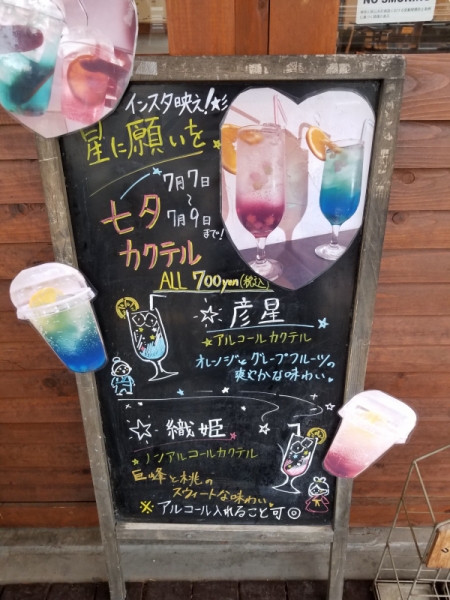 NO SMOKING
インスタ映え!
星に願いを
7月7日
～
7月9日
まで!
七夕
カクテル
ALL 700yen(税込)
彦星
アルコールカクテル
オレンジとグレープフルーツの
爽やかな味わい
織姫
ノンアルコールカクテル
巨峰と桃の
スウィートな味わい
※アルコール入れること可◎